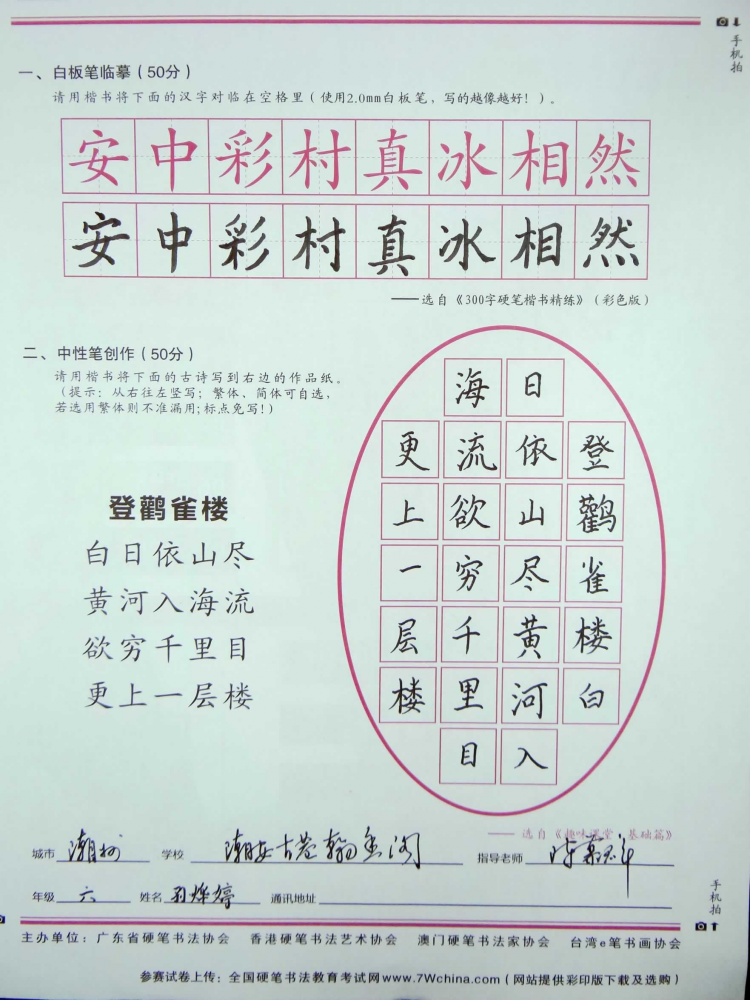 手机拍
一、白板笔临摹（50分）
请用楷书将下面的汉字对临在空格里（使用2.0mm白板笔，写的越像越好！）。
安中彩村真冰相然
安中彩村真冰相然
——选自《300字硬笔楷书精练》（彩色版）
二、中性笔创作（50分）
请用楷书将下面的古诗写到右边的作品纸。
（提示：从右往左竖写；繁体、简体可自选，
若选用繁体则不准漏用；标点免写！）
登鹳雀楼
白日依山尽
黄河入海流
欲穷千里目
更上一层楼
登鹳雀楼白
日依山尽黄河入
海流欲穷千里目
更上一层楼
——选自《趣味课堂·基础篇》
城市 潮州 学校 潮安古巷翰墨阁 指导老师
年级 六 姓名 通讯地址
手机拍
主办单位：广东省硬笔书法协会 香港硬笔书法艺术协会 澳门硬笔书法家协会 台湾e笔书画协会
参赛试卷上传：全国硬笔书法教育考试网www.7Wchina.com（网站提供彩印版下载及选购）